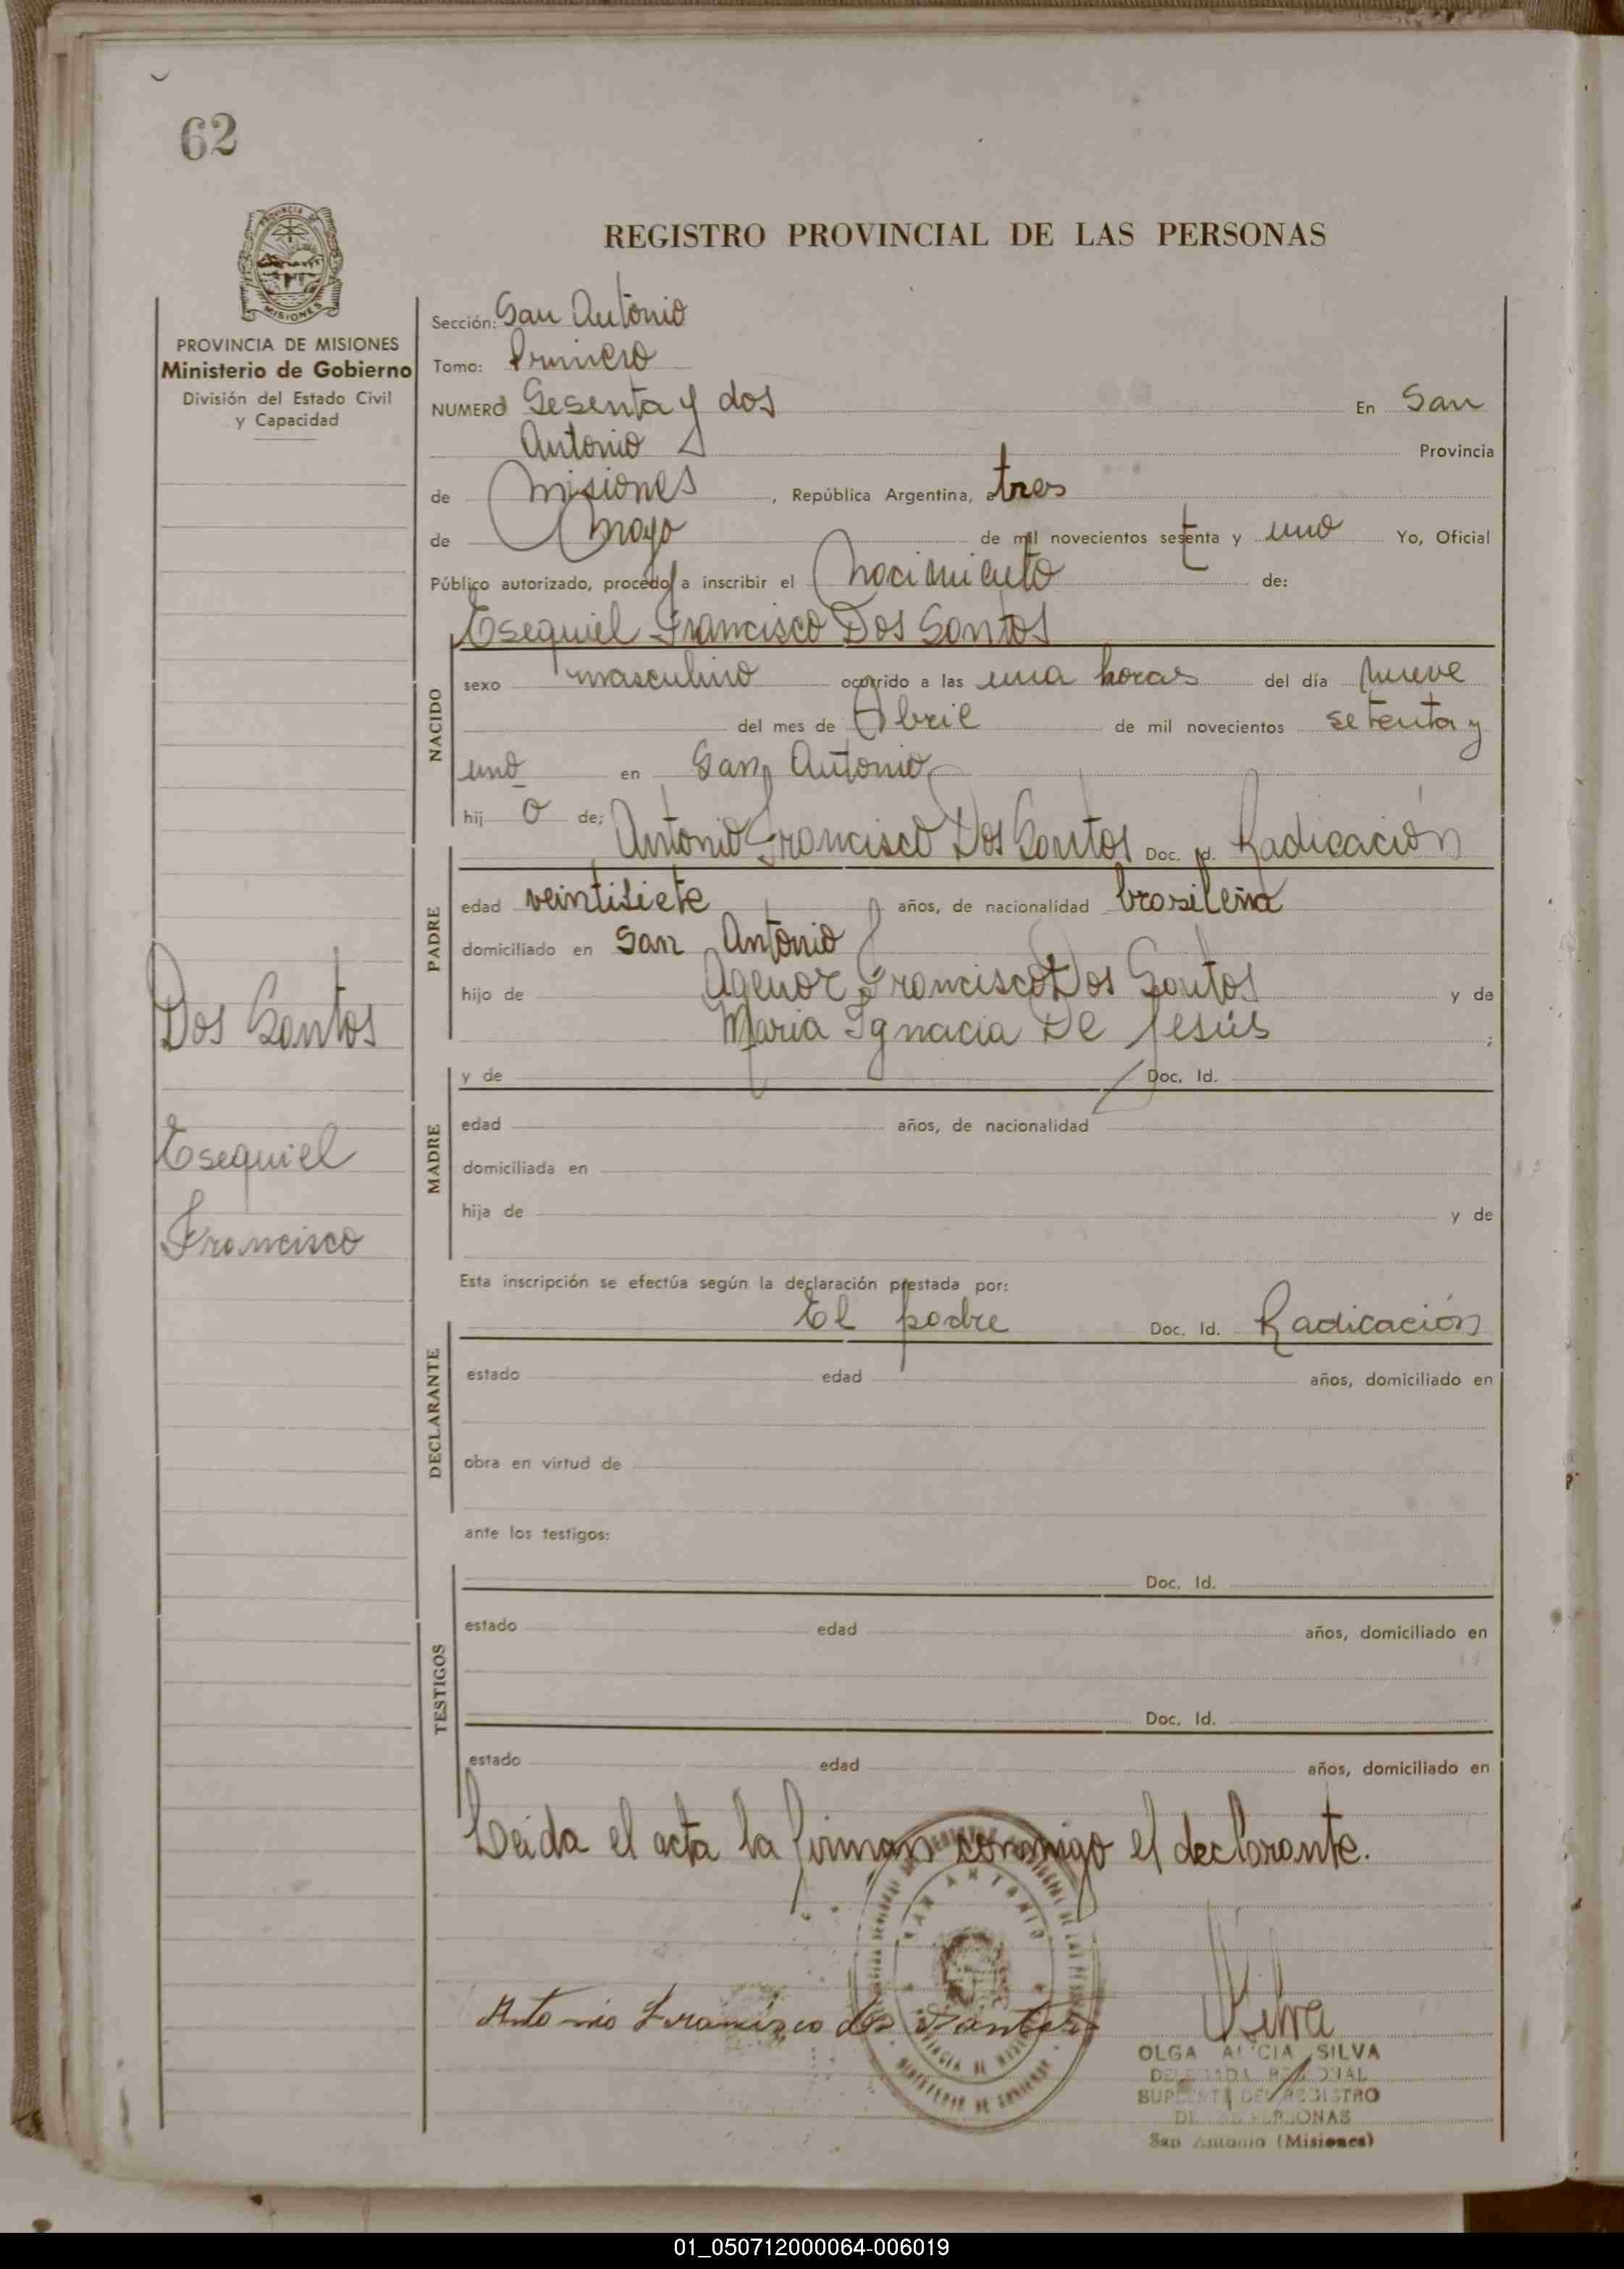 62
REGISTRO PROVINCIAL DE LAS PERSONAS
PROVINCIA DE MISIONES
Ministerio de Gobierno
División del Estado Civil
y Capacidad
Sección: San Antonio
Tomo: Primero
NUMERO Sesenta y dos En San
Antonio Provincia
de Misiones, República Argentina, a tres
de Mayo de mil novecientos setenta y uno Yo, Oficial
Público autorizado, procedo a inscribir el Nacimiento de:
Esequiel Francisco Dos Santos
NACIDO
sexo masculino ocorrido a las una horas del día nueve
del mes de Abril de mil novecientos setenta y
uno en San Antonio
hij o de; Antonio Francisco Dos Santos Doc. Id. Radicación
PADRE
edad veintisiete años, de nacionalidad brasileña
domiciliado en San Antonio
hijo de Agenor Francisco Dos Santos y de
Maria Ignacia De Jesús ;
Dos Santos
Esequiel
Francisco
MADRE
y de Doc. Id.
edad años, de nacionalidad
domiciliada en
hija de y de
Esta inscripción se efectúa según la declaración prestada por:
El padre Doc. Id. Radicación
DECLARANTE
estado edad años, domiciliado en
obra en virtud de
ante los testigos:
TESTIGOS
Doc. Id.
estado edad años, domiciliado en
Doc. Id.
estado edad años, domiciliado en
Leida el acta la firman conmigo el declarante.
SAN ANTONIO
MINISTERIO DE GOBIERNO
Antonio Francisco dos Santos
Silva
OLGA ALICIA SILVA
DELEGADA REGIONAL
SUPLENTE DEL REGISTRO
DE LAS PERSONAS
San Antonio (Misiones)
01_050712000064-006019